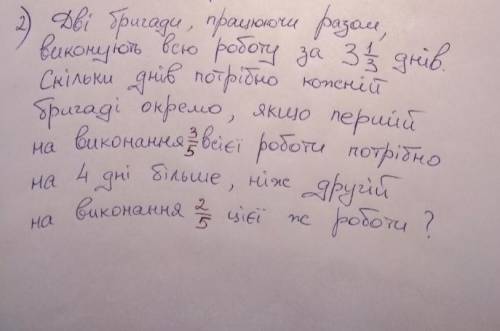 2) Дві бригади, працюючи разом,
виконують всю роботу за 3 1/3 днів.
Скільки днів потрібно кожній
бригаді окремо, якщо першій
на виконання 3/5 всієї роботи потрібно
на 4 дні більше, ніж другій
на виконання 2/5 цієї ж роботи?